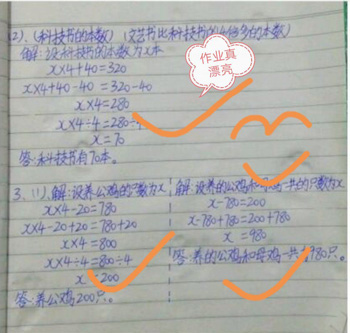 (2)、(科技书的本数) (文艺书比科技书的4倍多的本数)
解:设科技书的本数为x本
x×4+40=320
x×4+40-40=320-40
x×4=280
x×4÷4=280÷4
x=70
答:科技书有70本。
作业真
漂亮
3、(1)解:设养公鸡的只数为x
x×4-20=780
x×4-20+20=780+20
x×4=800
x×4÷4=800÷4
x=200
答:养公鸡200只。
解:设养的公鸡和母鸡一共的只数为x
x-780=200
x-780+780=200+780
x=980
答:养的公鸡和母鸡一共有980只。